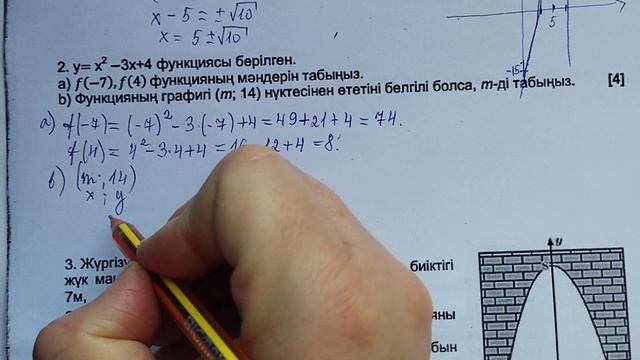 x - 5 = ±√10
x = 5 ± √10
5
-15
2. y= x² –3x+4 функциясы берілген.
a) f(–7), f(4) функцияның мәндерін табыңыз.
b) Функцияның графигі (m; 14) нүктесінен өтетіні белгілі болса, m-ді табыңыз. [4]
a) f(-7) = (-7)² - 3·(-7) + 4 = 49 + 21 + 4 = 74.
f(4) = 4² - 3·4 + 4 = 16 - 12 + 4 = 8.
b) (m; 14)
x ; y
3. биіктігі
жүк
7м,
y